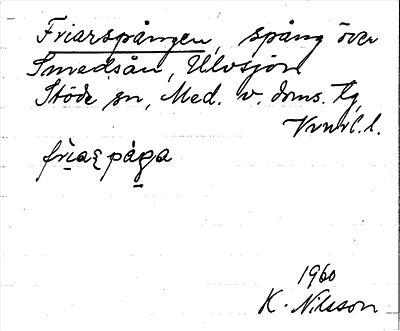 Friarspången, spång över
Smedsån, Ulvsjön
Stöde sn, Med. v. doms. tg,
Vnrl. l.
friaʂpåga
1960
K. Nilsson